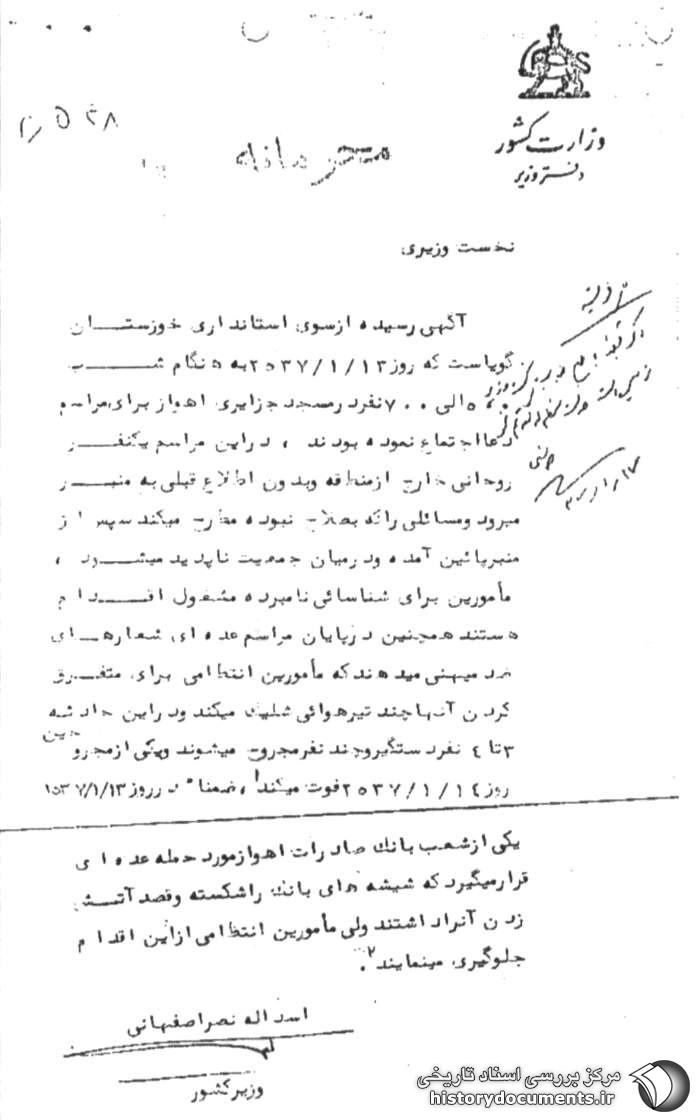 وزارت کشور
دفتر وزیر
محرمانه
نخست وزیری
آگهی رسیده ازسوی استانداری خوزستان
گویاست که روز ۲۵۳۷/۱/۱۳ به هنگام شب
۵۰۰ الی ۷۰۰ نفر در مسجد جزایری اهواز برای مراسم
دعا اجتماع نموده بودند ، دراین مراسم یکنفر
روحانی خارج ازمنطقه وبدون اطلاع قبلی به منبر
میرود ومسائلی راکه بصلاح نبوده مطرح میکند سپس از
منبرپائین آمده ودرمیان جمعیت ناپدید میشود ،
مأمورین برای شناسائی نامبرده مشغول اقدام
هستند همچنین درپایان مراسم عده ای شعارهای
ضد میهنی میدهند که مأمورین انتظامی برای متفرق
کردن آنها چند تیرهوائی شلیک میکند ودراین حادثه
۳ تا ٤ نفر دستگیر وچند نفر مجروح میشوند ویکی ازمجروحین
روز ۲۵۳۷/۱/۱٤ فوت میکند۱ ، ضمنا" در روز ۱۵۳۷/۱/۱۳
یکی ازشعب بانک صادرات اهواز مورد حمله عده ای
قرار میگیرد که شیشه های بانک راشکسته وقصد آتش
زدن آنرا داشتند ولی مأمورین انتظامی ازاین اقدام
جلوگیری مینمایند۲.
اسداله نصراصفهانی
وزیر کشور
مرکز بررسی اسناد تاریخی
historydocuments.ir